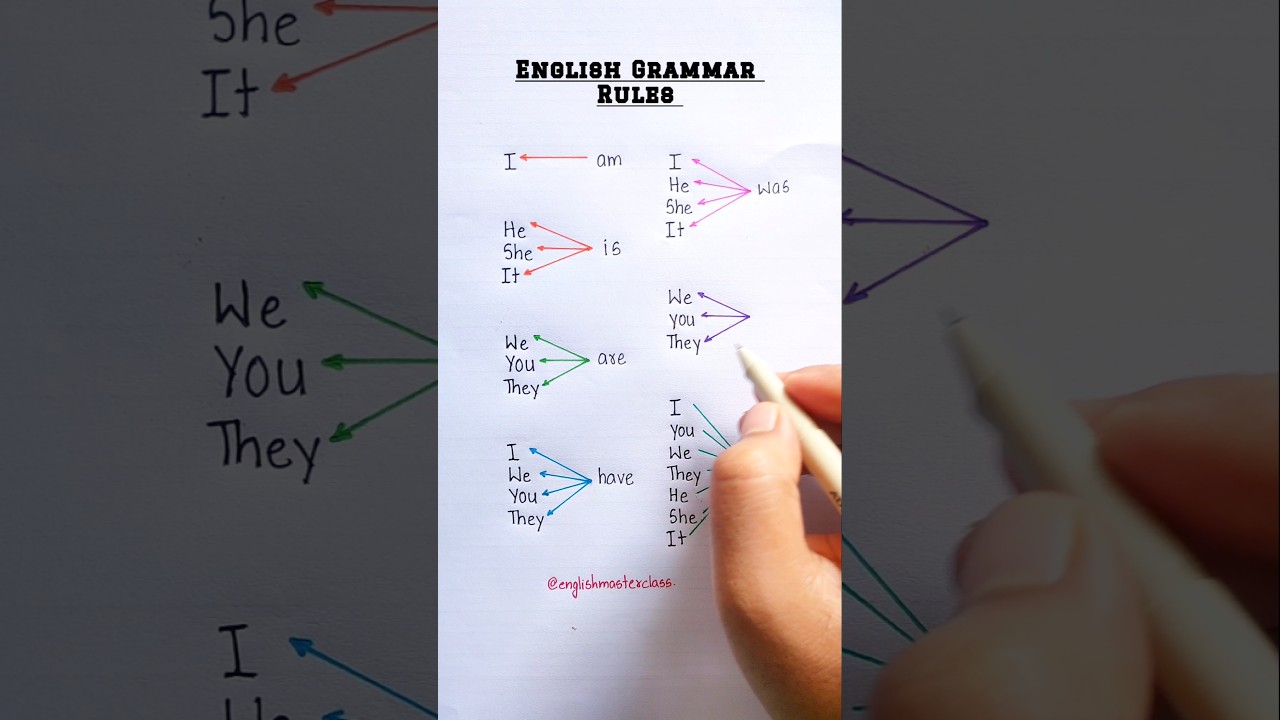 ENGLISH GRAMMAR
RULES
I am
He
She is
It
We
You are
They
I
We have
You
They
@englishmasterclass.
I
He was
She
It
We
You
They
I
You
We
They
He
She
It
She
It
We
You
They
I